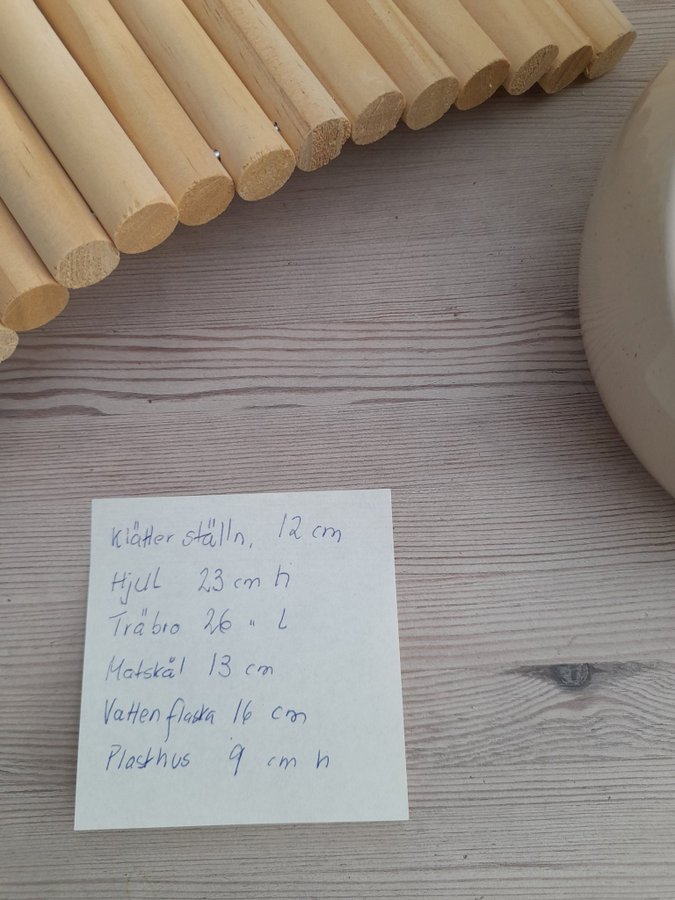 Klätter ställn, 12 cm
Hjul 23 cm h
Träbro 26 " L
Matskål 13 cm
Vattenflaska 16 cm
Plasthus 9 cm h